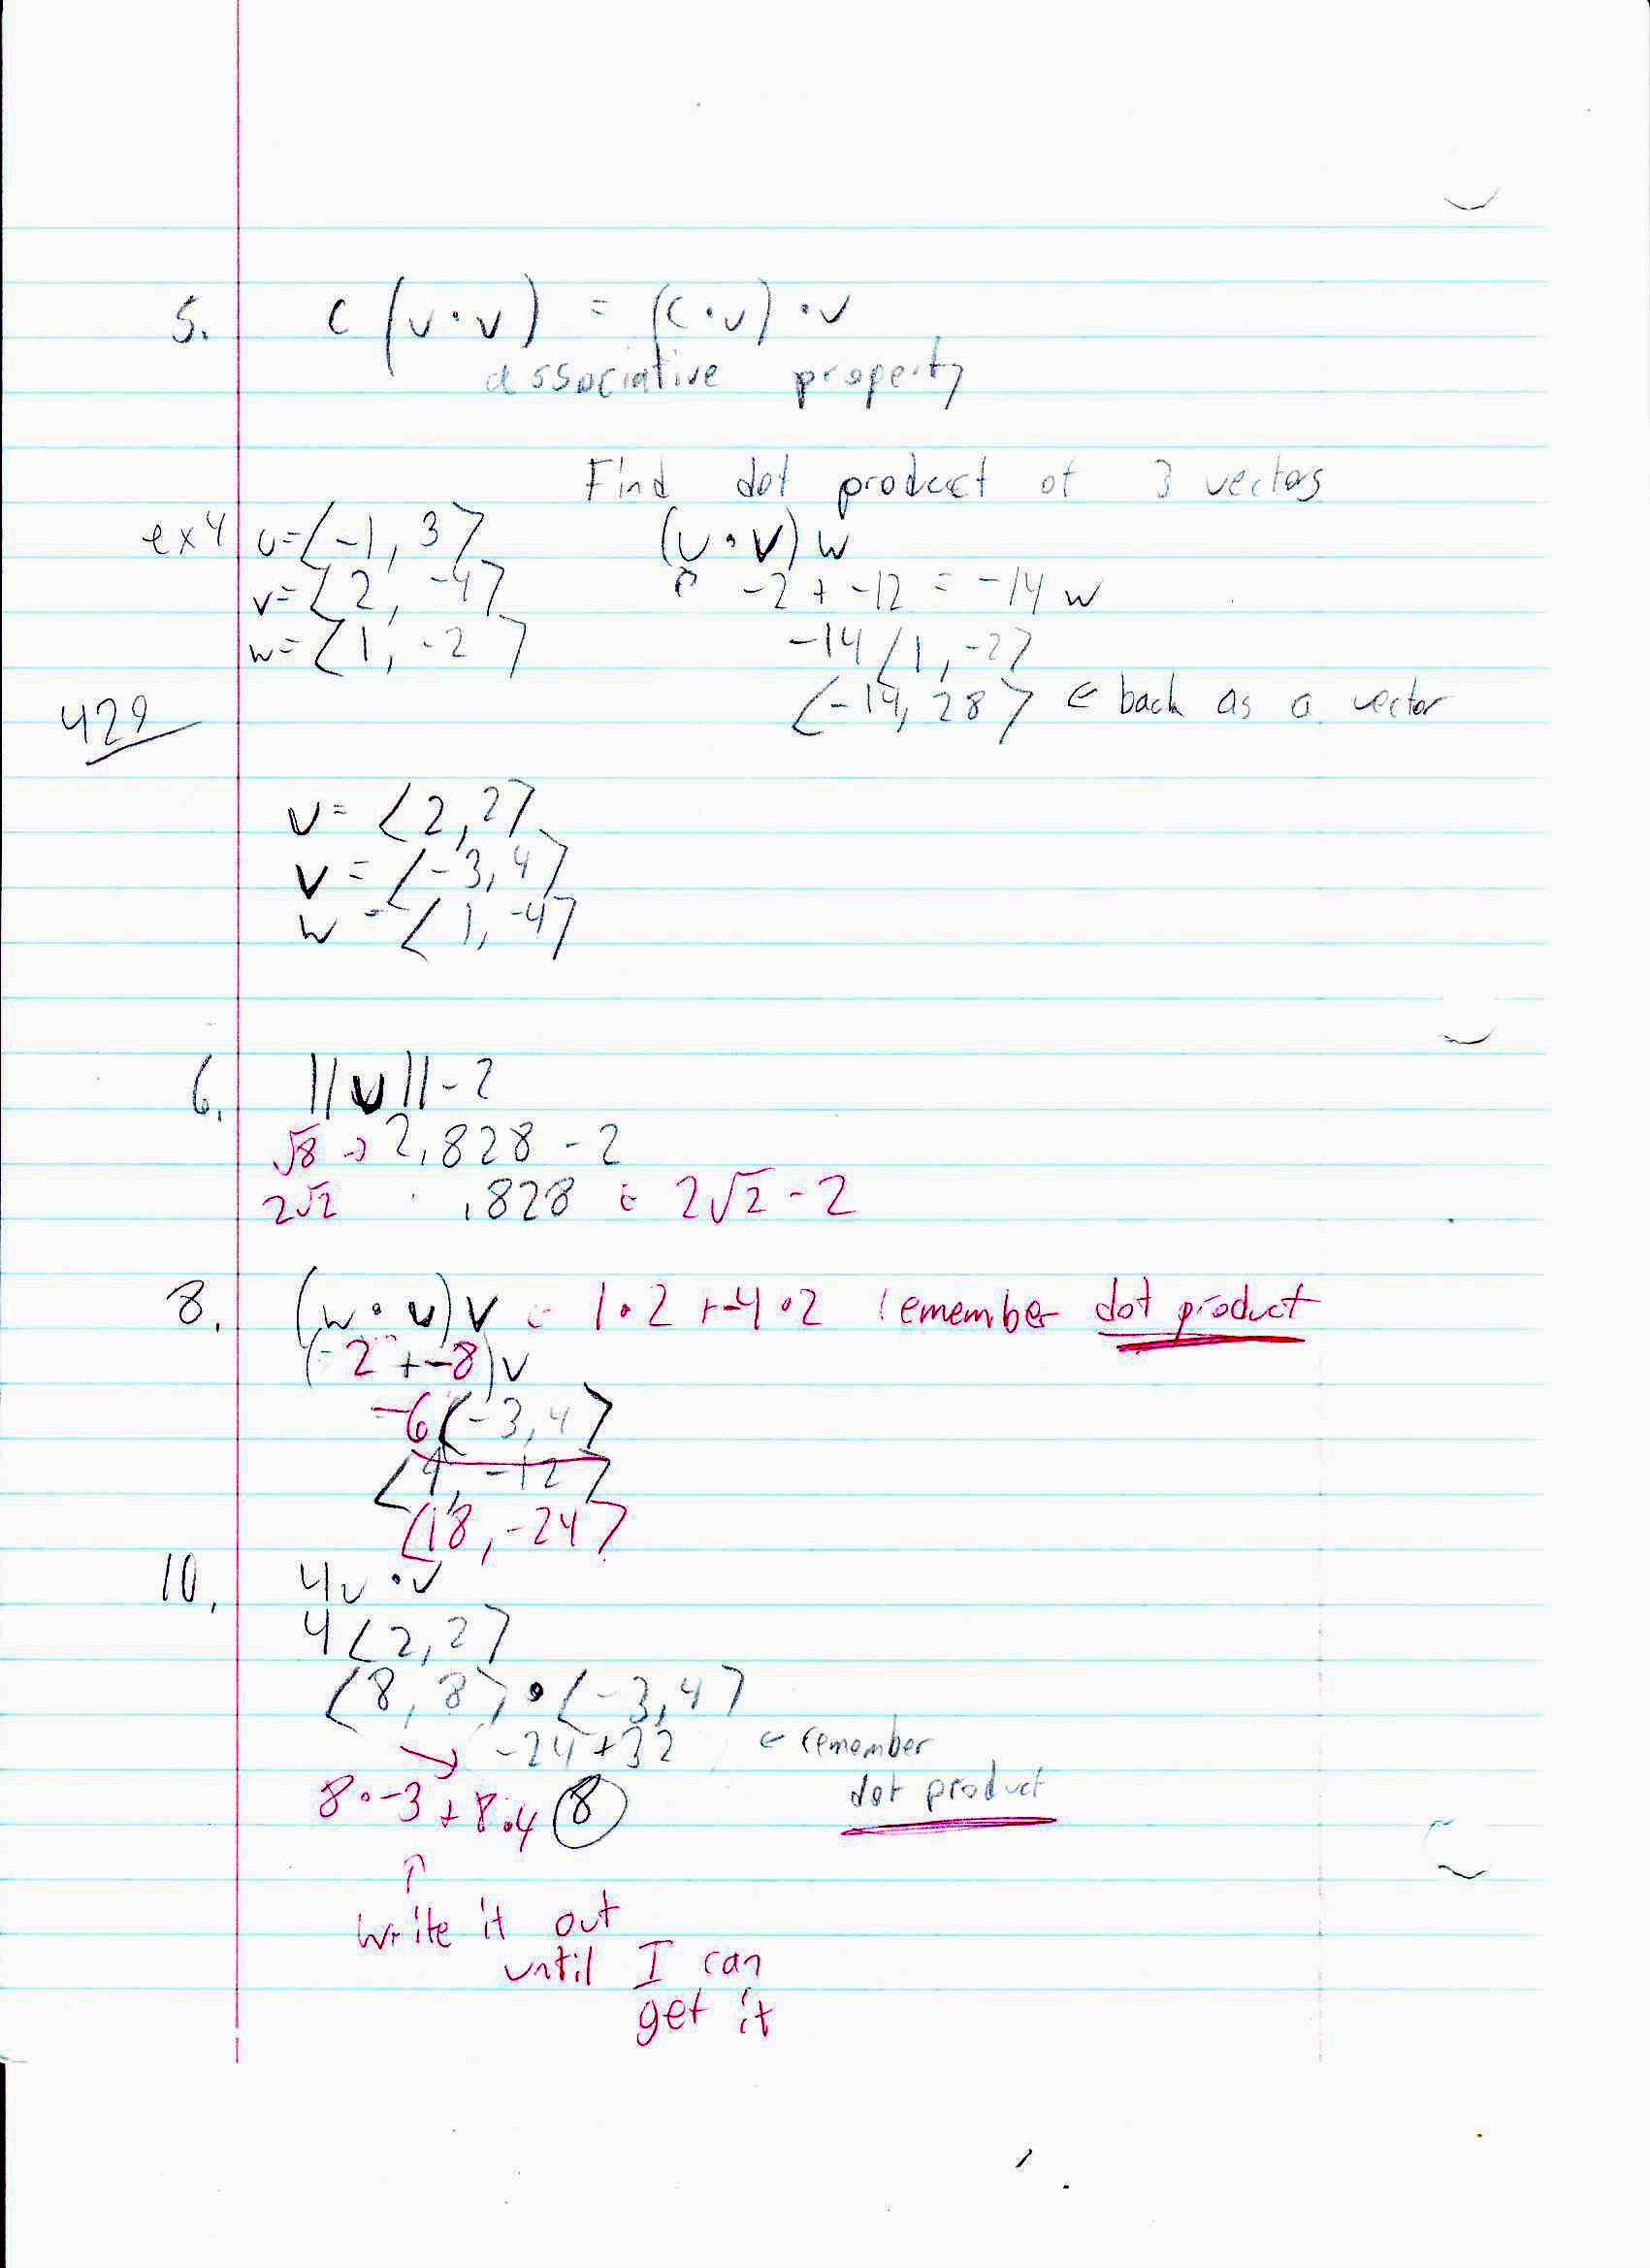 5. c (u · v) = (c · u) · v
associative property
Find dot product of 3 vectors
ex 4 u = ⟨-1, 3⟩ (u · v) w
v = ⟨2, -4⟩ ↑ -2 + -12 = -14 w
w = ⟨1, -2⟩ -14 ⟨1, -2⟩
429 ⟨-14, 28⟩ ← back as a vector
u = ⟨2, 2⟩
v = ⟨-3, 4⟩
w = ⟨1, -4⟩
6. ||u|| - 2
√8 → 2.828 - 2
2√2 .828 = 2√2 - 2
8. (w · u) v = 1 · 2 + -4 · 2 remember dot product
(2 + -8) v
-6 ⟨-3, 4⟩
-12⟩
⟨18, -24⟩
10. 4u · v
4 ⟨2, 2⟩
⟨8, 8⟩ · ⟨-3, 4⟩
-24 + 32 ← remember
8 · -3 + 8 · 4 (8) dot product
↑
write it out
until I can
get it